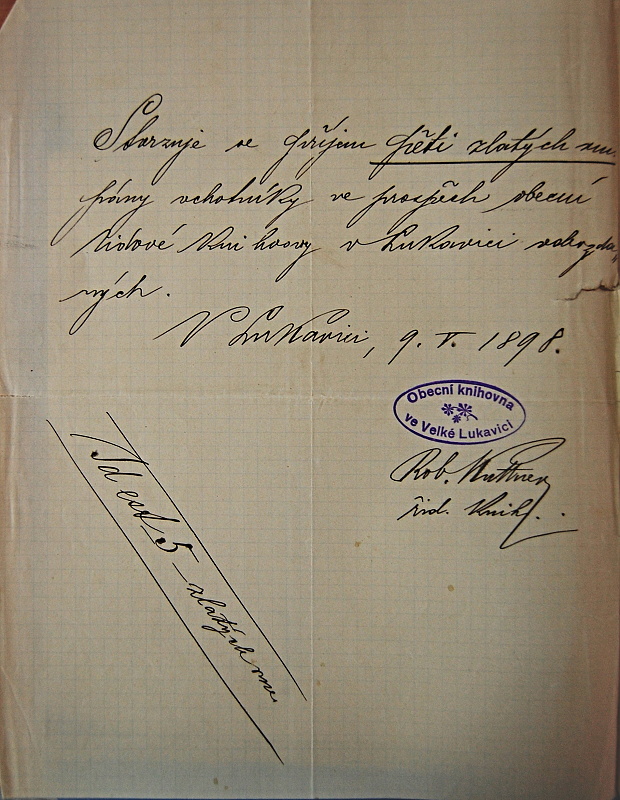 Stvrzuje se příjem pěti zlatých
pány ochotníky ve prospěch obecní
lidové knihovny v Lukavici
ných.
V Lukavici, 9. V. 1898.
Obecní knihovna
ve Velké Lukavici
Rob. Kuttner
říd. knih.
Id est 5 zlatých